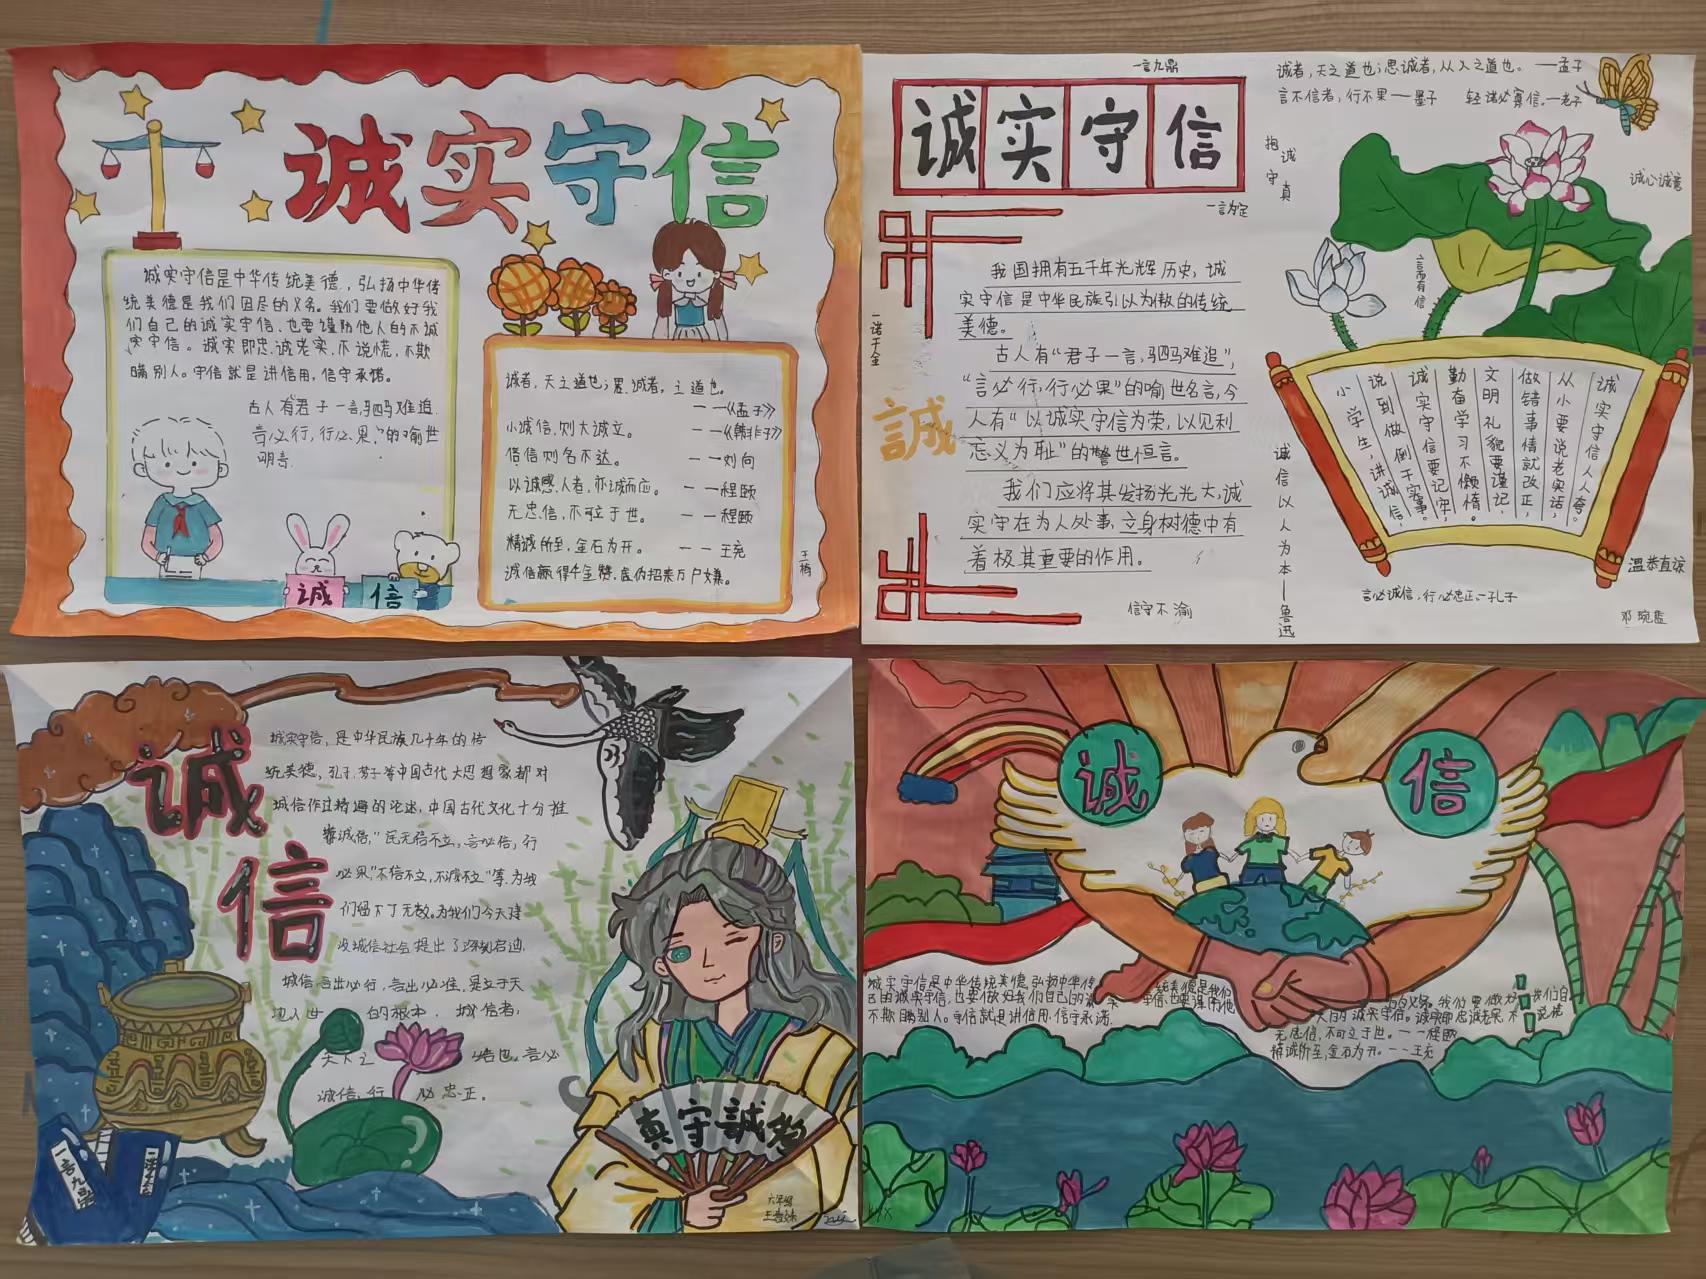 诚实守信
诚实守信是中华传统美德,弘扬中华传
统美德是我们因尽的义务。我们要做好我
们自己的诚实守信,也要谨防他人的不诚
实守信。诚实即忠诚老实,不说慌,不欺
瞒别人。守信就是讲信用,信守承诺。
古人有君子一言,驷马难追.
言必行,行必果,"的喻世
明言.
诚
信
诚者,天之道也;思诚者,之道也。
——《孟子》
小诚信,则大诚立。——《韩非子》
信信则名不达。——刘向
以诚感人者,亦诚而应。——程颐
无忠信,不可立于世。——程颐
精诚所至,金石为开。——王充
诚信赢得千金赞,虚伪招来万户嫌。
一言九鼎
诚实守信
一言为定
诚者,天之道也;思诚者,从人之道也。——孟子
言不信者,行不果——墨子 轻诺必寡信,—老子
抱诚守真
诚心诚意
言而有信
一诺千金
誠
我国拥有五千年光辉历史,诚
实守信是中华民族引以为傲的传统
美德。
古人有"君子一言,驷马难追",
"言必行,行必果"的喻世名言,今
人有"以诚实守信为荣,以见利
忘义为耻"的警世恒言。
我们应将其发扬光光大,诚
实守在为人处事,立身树德中有
着极其重要的作用。
信守不渝
诚信以人为本—鲁迅
诚实守信人人夸。
从小要说老实话,
做错事情就改正,
文明礼貌要谨记,
勤奋学习不懒惰。
诚实守信要记牢,
说到做倒干实事。
小学生,讲诚信,
温恭直谅
言必诚信,行必忠正—孔子
诚
信
诚实守信,是中华民族几千年的传
统美德,孔子.孟子等中国古代大思想家都对
诚信作过精遍的论述,中国古代文化十分推
崇诚信,"民无信不立,言必信,行
必果,"不信不立,不诚不立"等,为我
们留下了无数。为我们今天建
设诚信社会提出了深刻启迪.
诚信言出必行,言出必准,是立于天
地人世 的根本.诚信者,
天下之 结也.言必
诚信,行 必忠正。
一言九鼎
真守誠抱
六年级
诚
信
诚实守信是中华传统美德,弘扬中华传
己的诚实守信,也要做好我们自己的诚实
不欺瞒别人。守信就是讲信用,信守承诺.
统美德是我们
守信,也要谨防他
义务。我们要做好 我们自
人的诚实守信。诚实即忠诚老实,不 说谎
无忠信,不可立于世。——程颐
精诚所至,金石为开。——王充